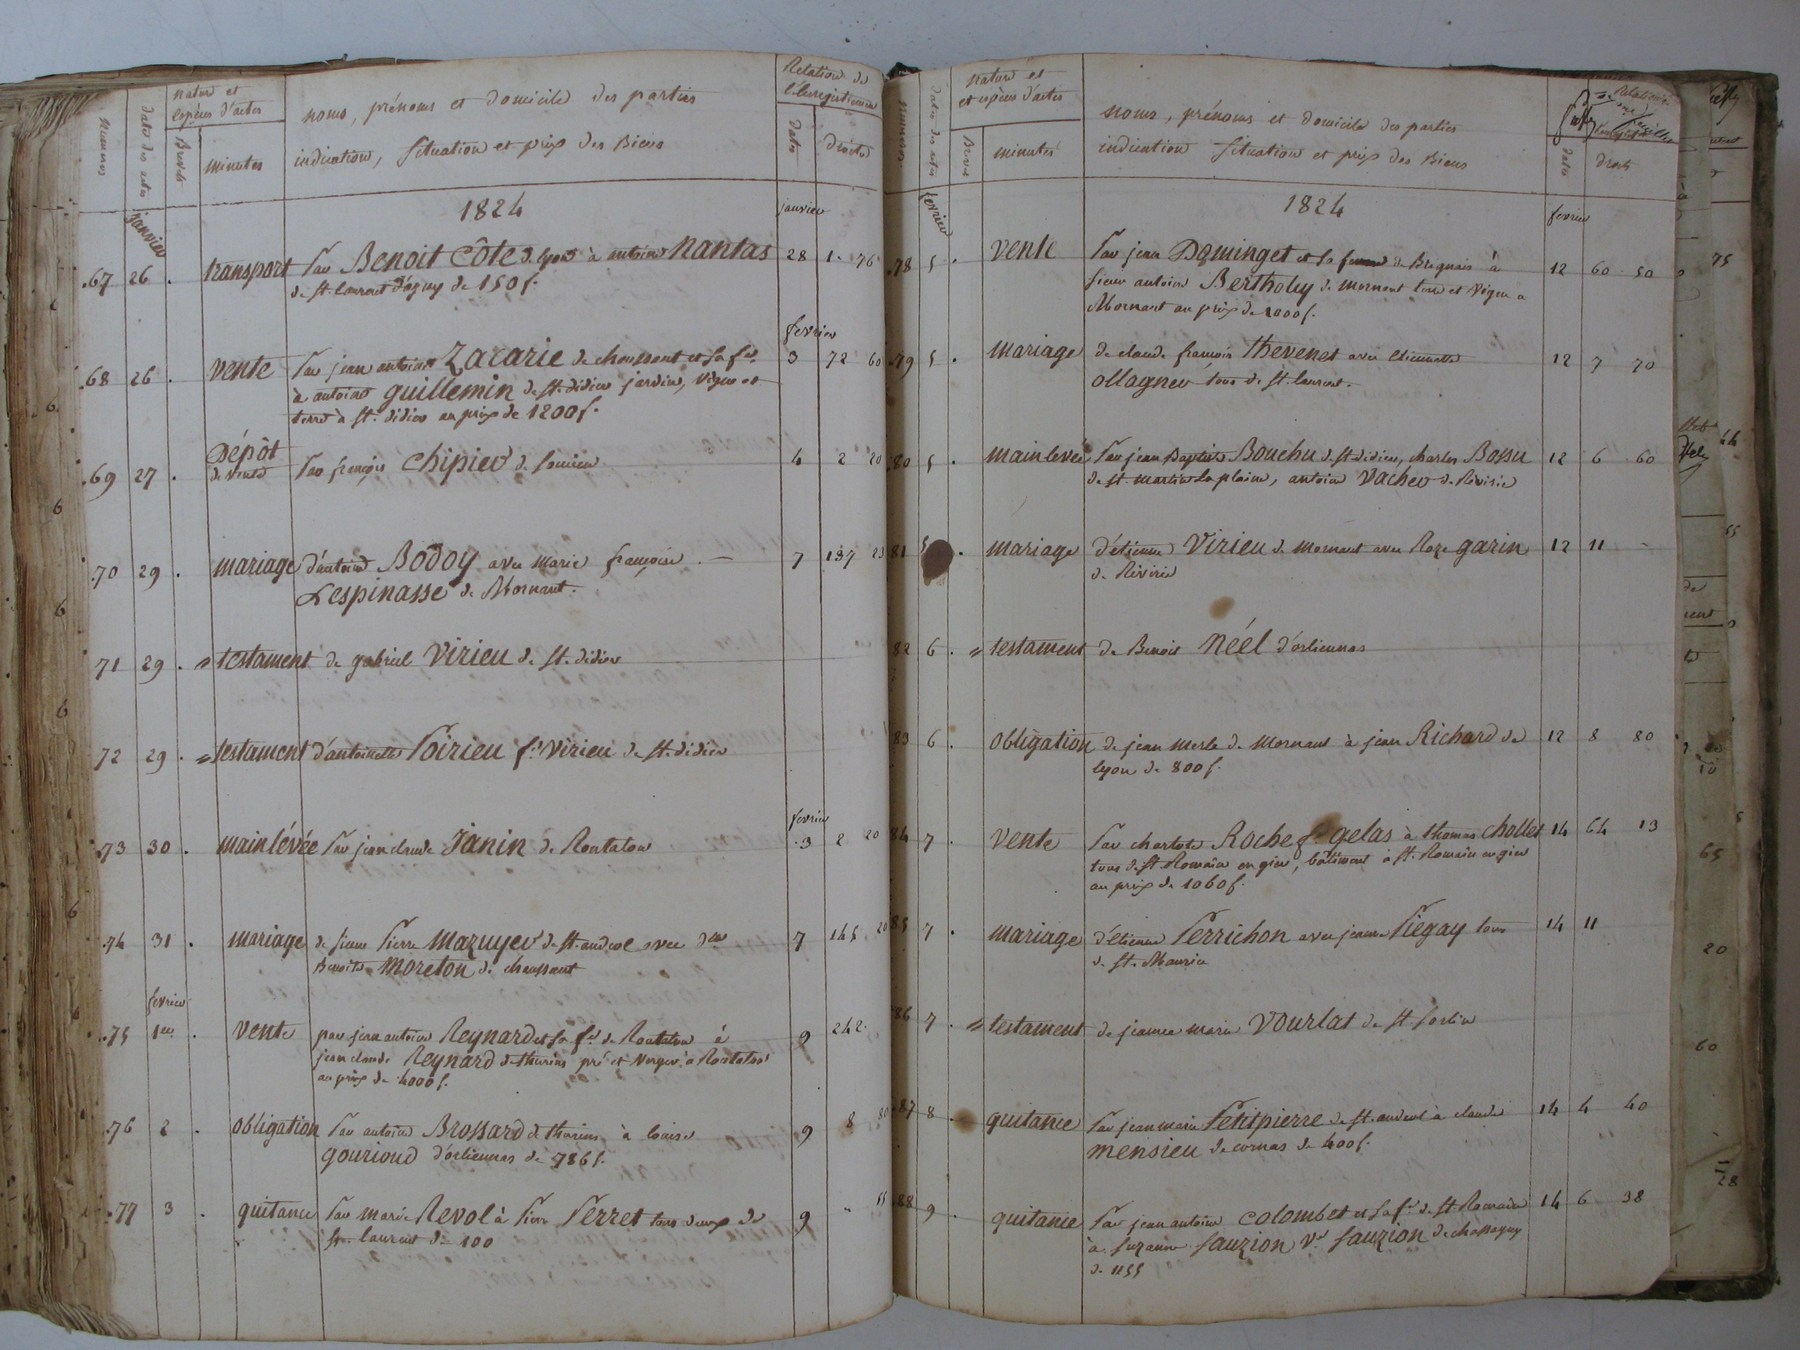 Numeros
dates des actes
nature et
espèces d'actes
Brevets
minutes
noms, prénoms et domicile des parties
indication, situation et prix des Biens
Relation de
l'Enregistrement
dates
droits
1824
janvier
janvier
67 26 . transport Par Benoit Côte de lyon à antoine Nantas 28 1. 76
de St. laurent d'agny de 150 f.
fevrier
68 26 . vente Par jean antoine Zacarie de chaussant et sa fe. 3 72 60
à antoine guillemin de St. didier jardin, vigne et
terre à St. didier au prix de 1200 f.
69 27 . Dépôt Par françois Chipier de Soucieu 4 2 20
de vente
70 29 . mariage d'antoine Bodoy avec marie françoise 7 137 23
Lespinasse de Mornant.
71 29 . = testament de gabriel Virieu de St. didier
72 29 . = testament d'antoinette Poirieu f.e Virieu de St. didier
fevrier
73 30 . mainlévée Par jean claude Janin de Rontalon 3 2 20
74 31 . mariage de sieur Pierre Mazuyer de St. andeol avec dlle 7 145 20
Benoite Moreton de chaussant
fevrier
75 1er . vente par jean antoine Reynard et sa fe. de Rontalon à 9 242.
jean claude Reynard de thurins pré et verger à Rontalon
au prix de 4000 f.
76 2 . obligation Par antoine Brossard de thurins à louise 9 8 80
gouriond d'orliennas de 786 f.
77 3 . quitance Par marie Revol à Pierre Perret tous deux de 9 " 55
St. laurent de 100
numeros
dates des actes
nature et
et espèces d'actes
Brevet
minutes
noms, prénoms et domicile des parties
indication situation et prix des Biens
dates
droits
1824
fevrier
fevrier
78 5 . vente Par jean Dominget et sa femme de Brignais à 12 60 50
sieur antoine Bertholey de mornant terre et vigne à
Mornant au prix de 1000 f.
79 5 . mariage de claude françois thevenet avec etiennette 12 7 70
ollagner tous de St. laurent.
80 5 . mainlevée Par jean Baptiste Bouchu de St. didier, charles Bossu 12 6 60
de St. martin la plaine, antoine Vacher de Riverie
81 5 . mariage d'étienne Virieu de mornant avec Roze garin 12 11 -
de Riverie
82 6 . = testament de Benoit Néel d'orliennas
83 6 . obligation de jean merle de mornant à jean Richard de 12 8 80
lyon de 800 f.
84 7 . vente Par charlote Roche fe. gelas à thomas chollet 14 64 13
tous de St. Romain en gier, bâtiment à St. Romain en gier
au prix de 1060 f.
85 7 . mariage d'étienne Perrichon avec jeanne Piegay tous 14 11
de St. Maurice
86 7 . = testament de jeanne marie Vourlat de St. Sorlin
87 8 quitance Par jean marie Petitpierre de St. andeol à claude 14 4 40
mensieu de cornas de 400 f.
88 9 . quitance Par jean antoine Colombet et sa fe. de St. Romain 14 6 38
à Suzanne Sauzion Ve. Sauzion de chassagny
de 1155